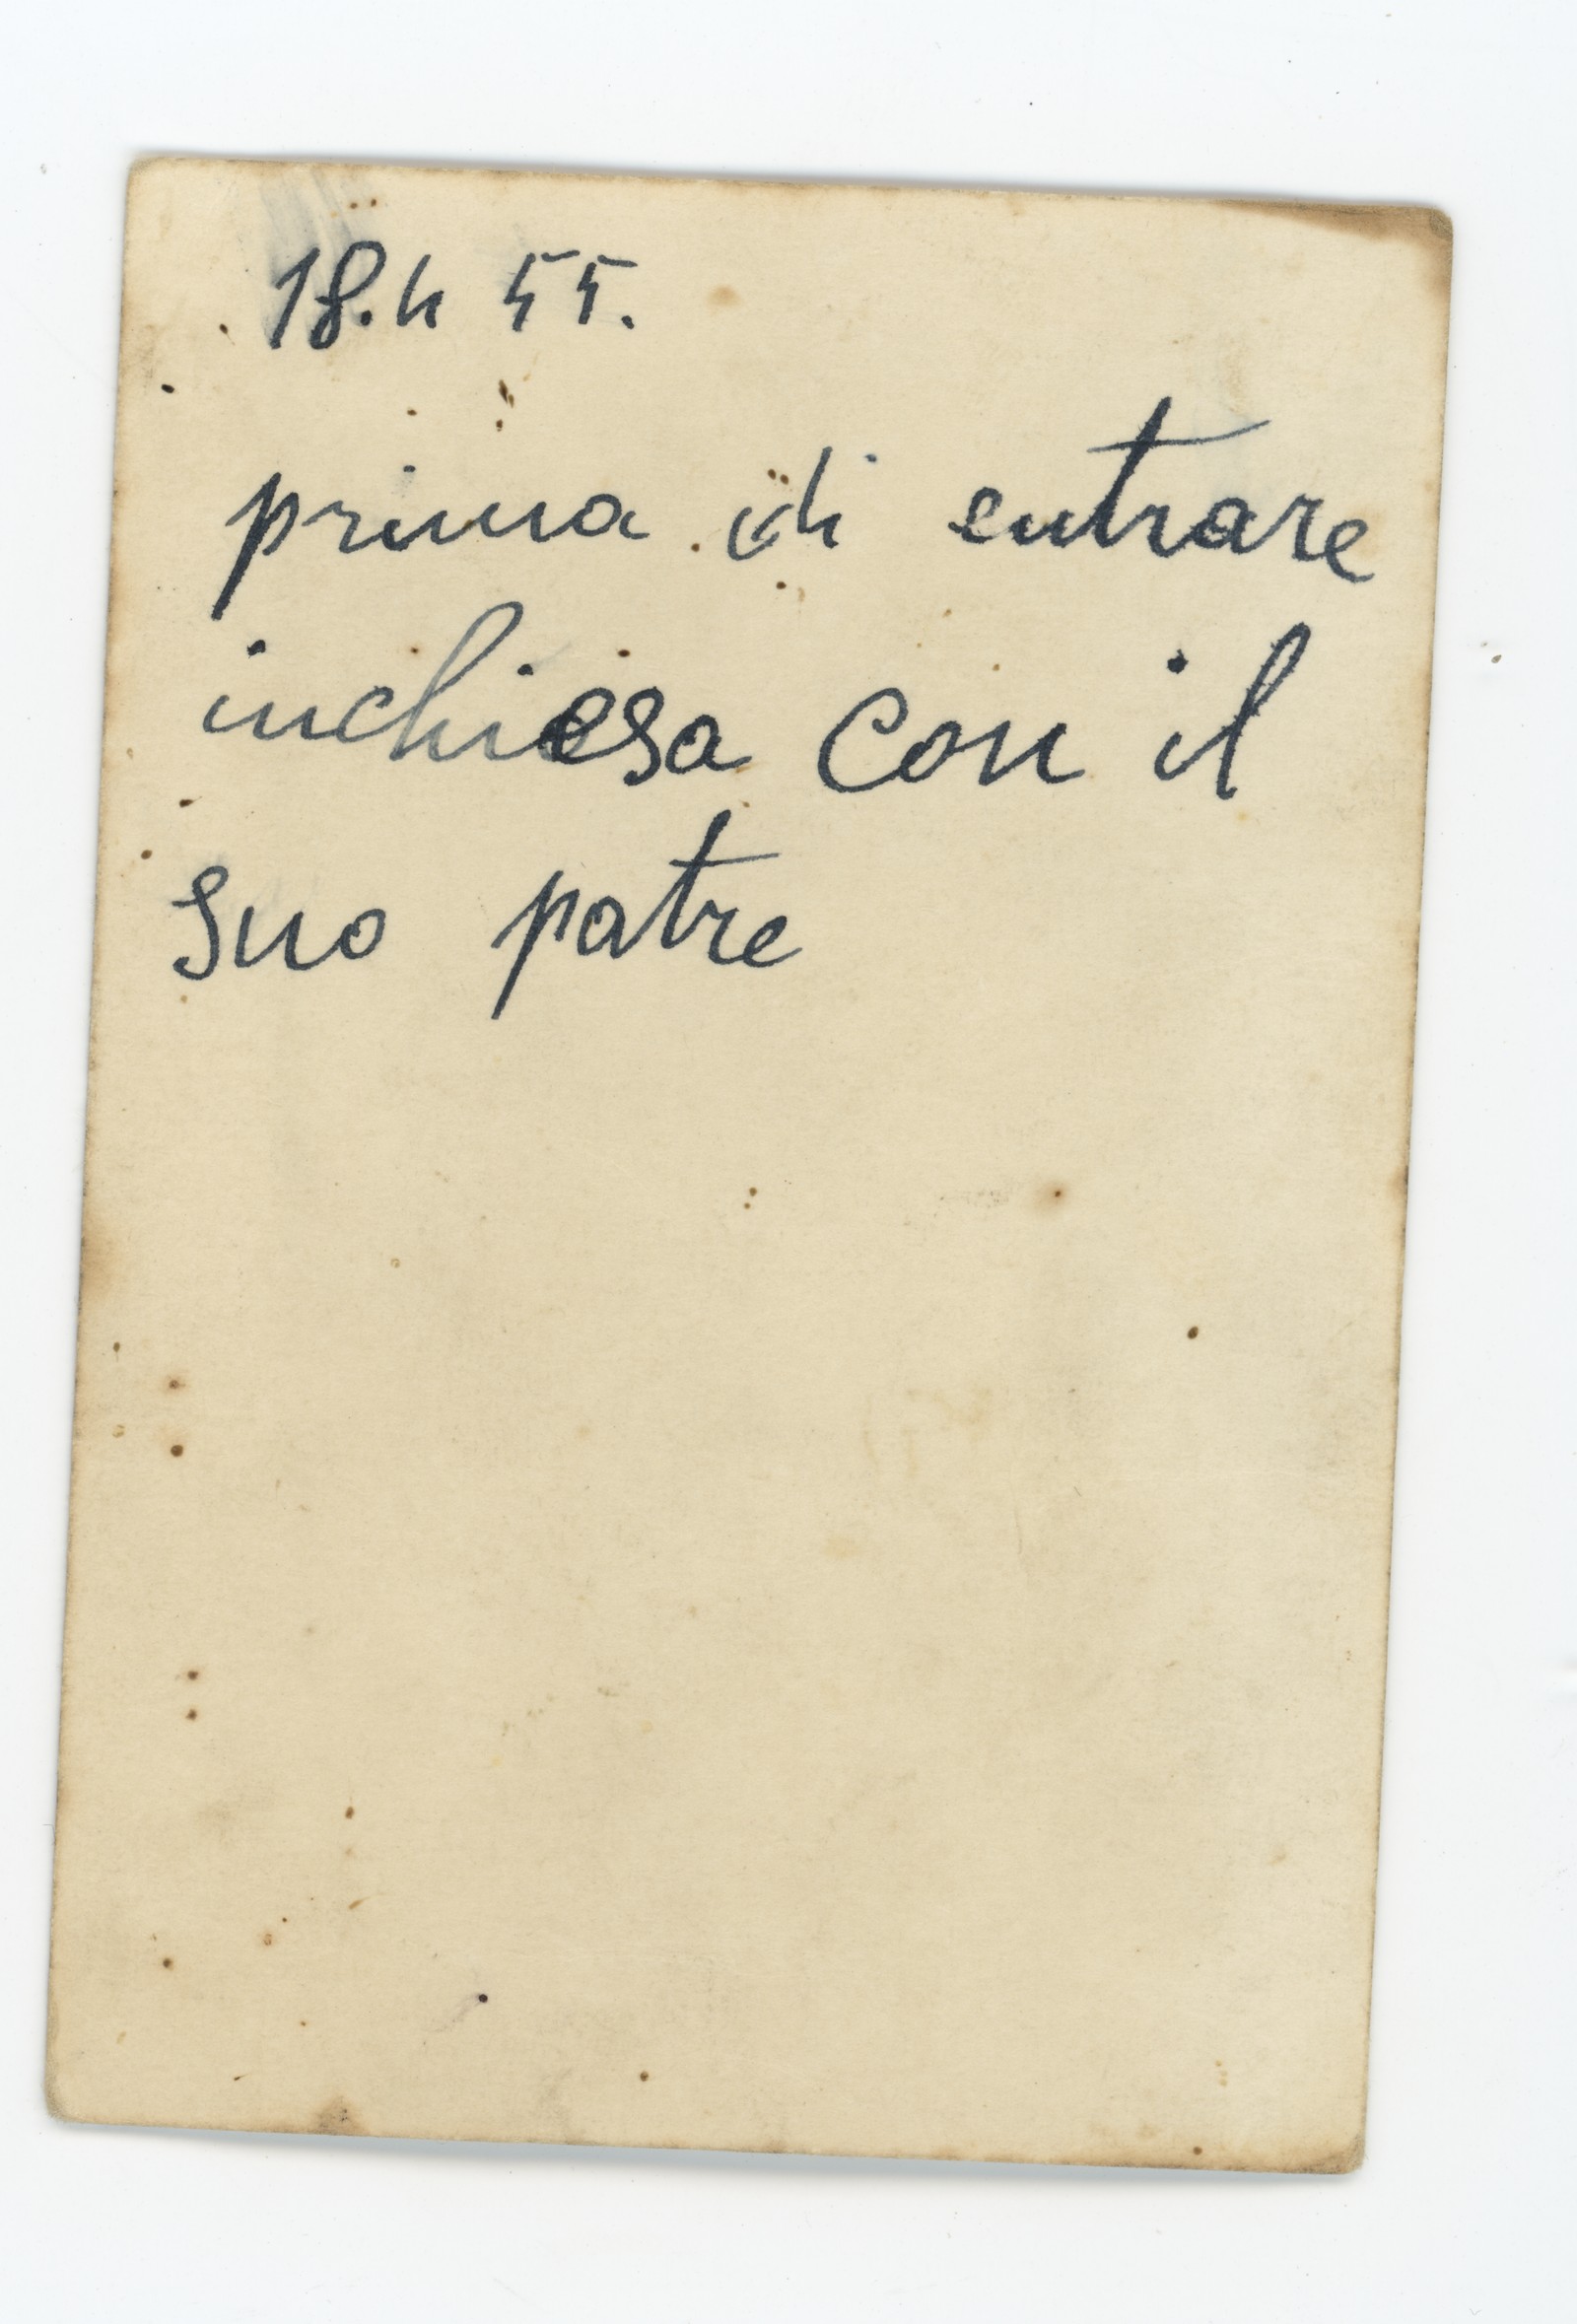 18.4 55.
prima di entrare
inchiesa con il
suo patre